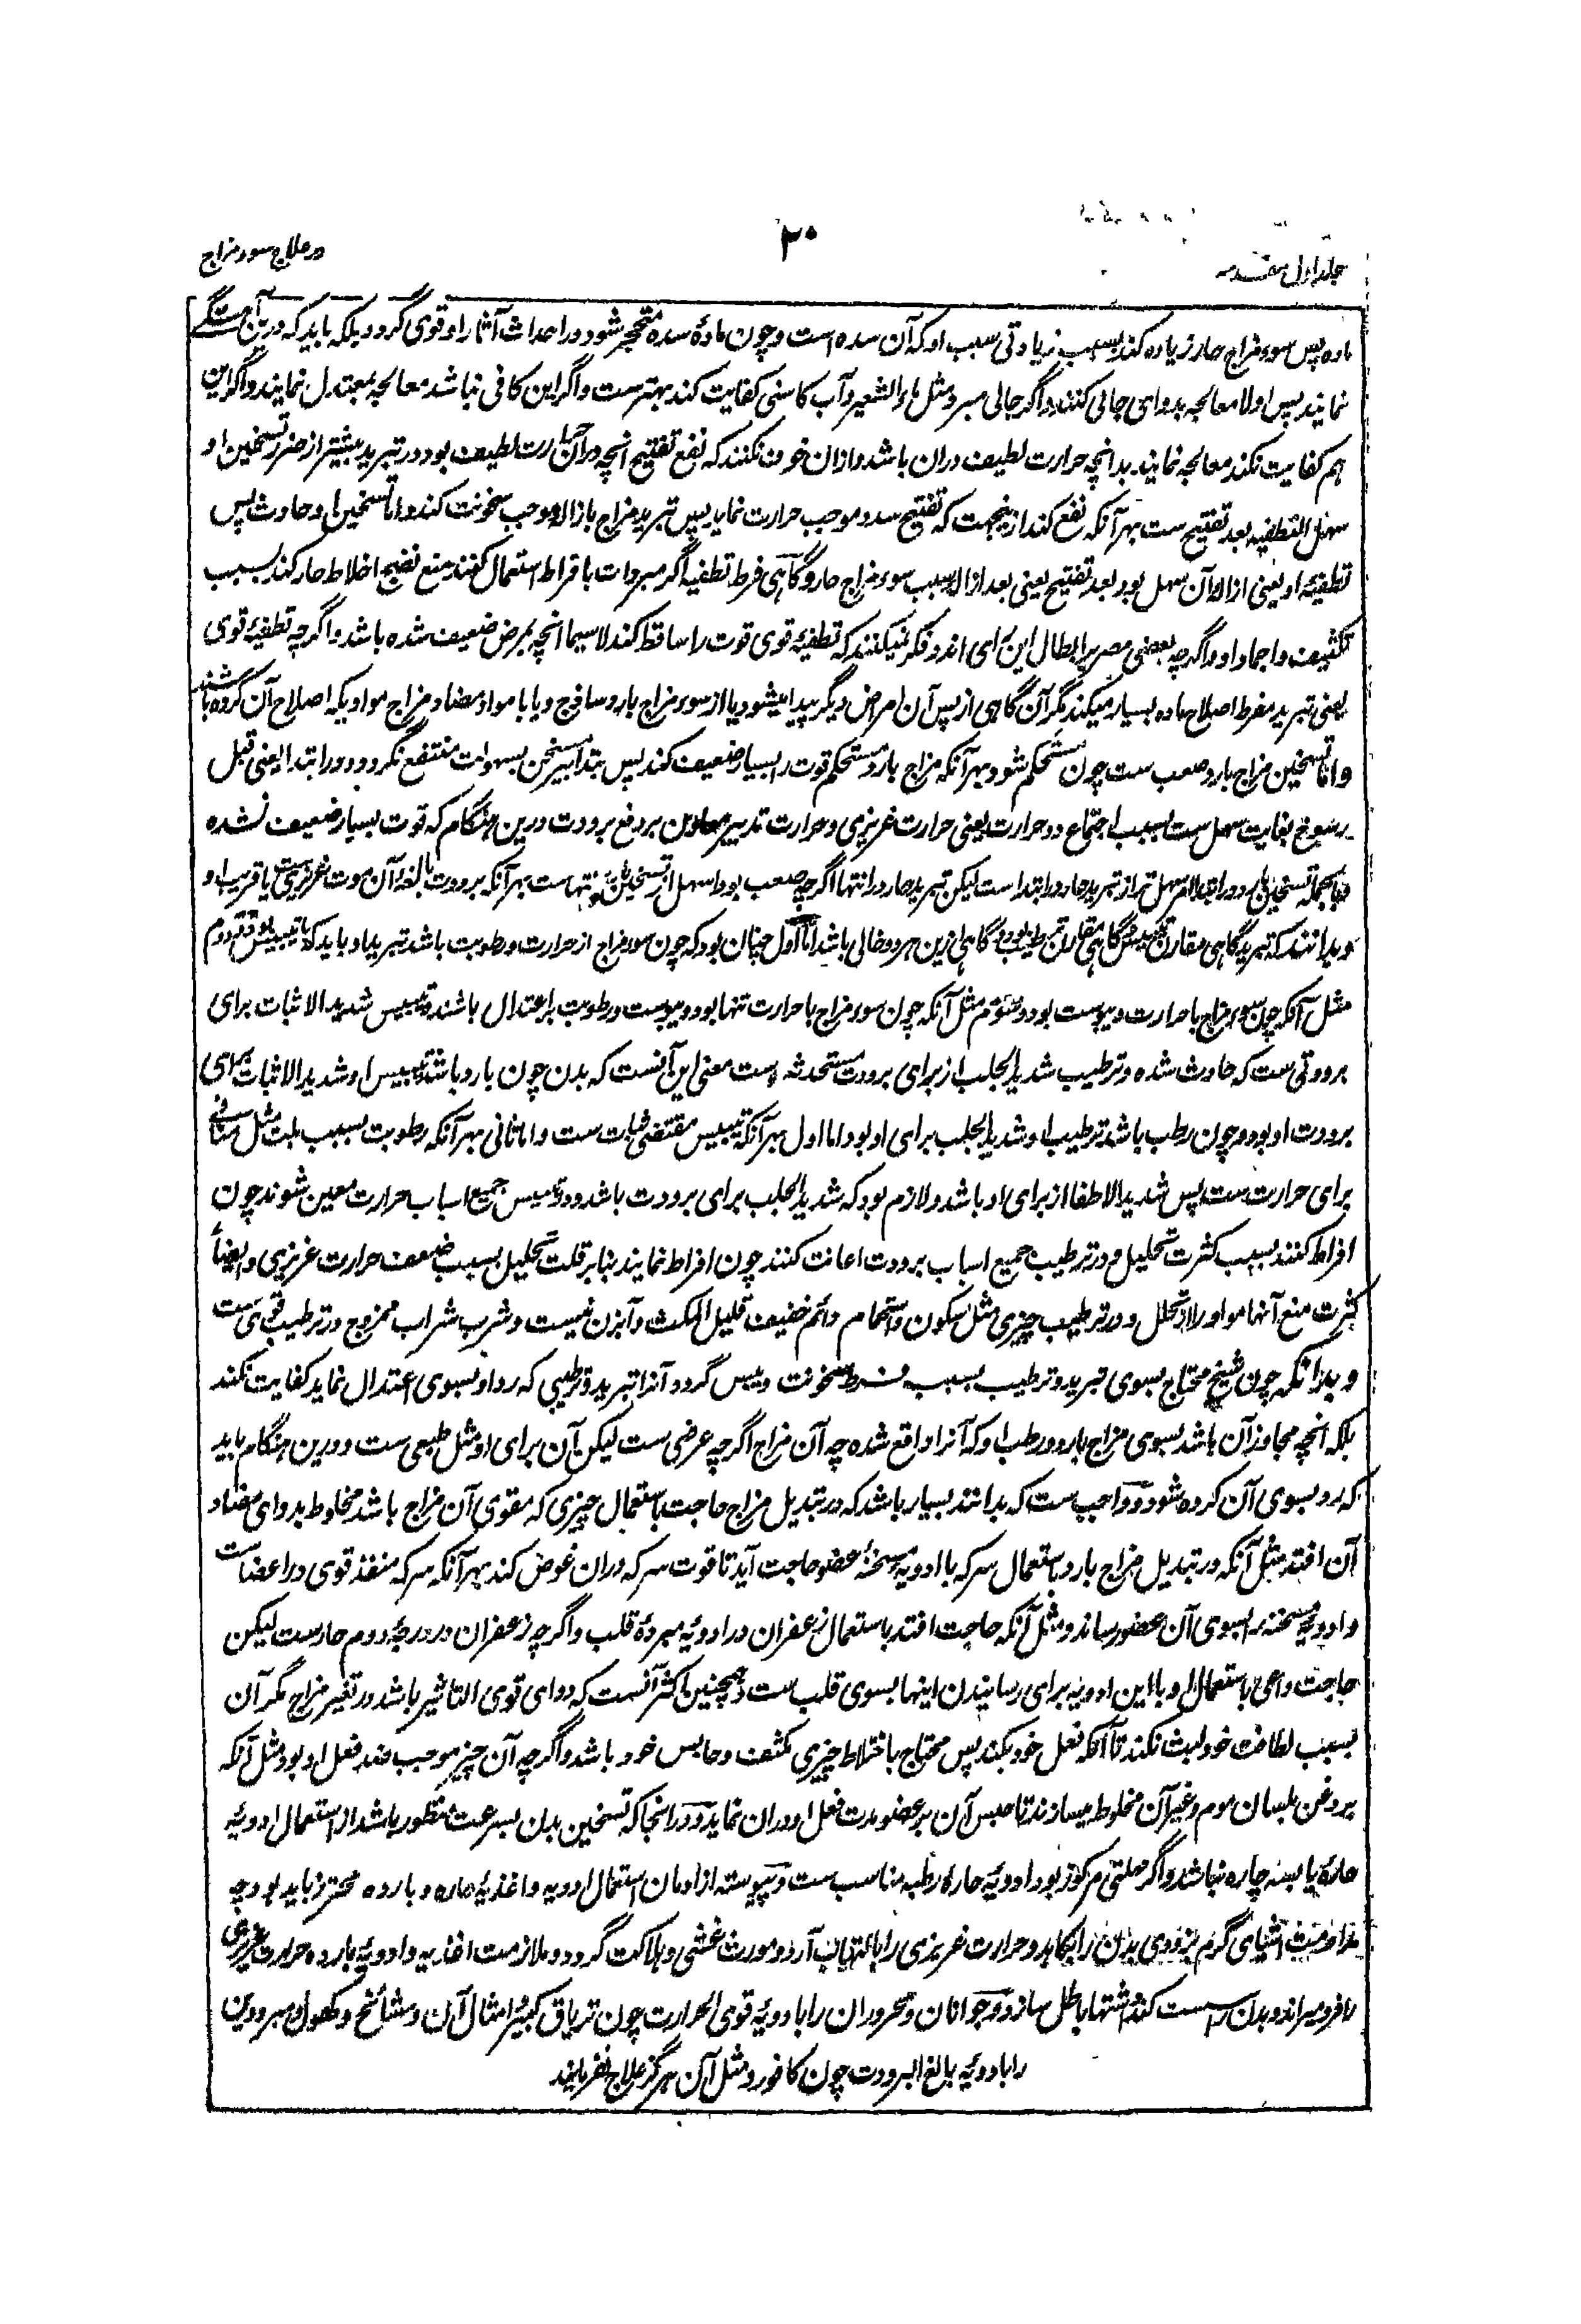 جلد اول مقدمه
۳۰
در علاج سوء مزاج
ماده پس سوء مزاج حار زیاده کند بسبب زیادتی سبب او که آن سده است و چون مادهٔ سده متحجر شود در احداث آثار او قوی گردد بلکه باید که درین آهستگی
نمایند پس اولا معالجه بدوای جالی کنند و اگر جالی مبرد مثل ماء الشعیر و آب کاسنی کفایت کند بهترست و اگر این کافی نباشد معالجه بمعتدل نمایند و اگر این
هم کفایت نکند معالجه نمایند بدانچه حرارت لطیف دران باشد و ازان خوف نکنند که نفع تفتیح انچه دران حرارت لطیف بود در تبرید بیشتر از ضرر تسخین او
سهل التطفیه بعد تفتیح ست بهر آنکه نفع کند ازینجهت که تفتیح سده موجب حرارت نماید پس تبرید مزاج بازاله موجب سخونت کند و اما تسخین او حادث پس
تطفیهٔ او یعنی ازالهٔ آن سهل بود بعد تفتیح یعنی بعد ازاله سبب سوء مزاج حار و گاهی فرط تطفیه اگر مبردات بافراط استعمال کنند منع نضج اخلاط حار کند بسبب
تکثیف و اجماد او و اگرچه بعضی مصر بر ابطال این رای اند و فکر نمیکنند که تطفیهٔ قوی قوت را ساقط کند لاسیما انچه بمرض ضعیف شده باشد و اگرچه تطفیهٔ قوی
یعنی تبرید مفرط اصلاح ماده بسیار میکند مگر آن گاهی از پس آن امراض دیگر پیدا میشود یا از سوء مزاج بارد ساذج و یا با مواد مضاد مزاج موادیکه اصلاح آن کرده باشند
و اما تسخین مزاج بارد صعب ست چون مستحکم شود بهر آنکه مزاج بارد مستحکم قوت را بسیار ضعیف کند پس بتدابیر مسخن بسهولت منتفع نگردد و در ابتدا یعنی قبل
رسوخ بغایت سهل ست بسبب اجتماع دو حرارت یعنی حرارت غریزی و حرارت تدبیر معاون بر دفع برودت درین هنگام که قوت بسیار ضعیف نشده
و بالجمله تسخین بارد در ابتدا سهل تر از تبرید حار در ابتداست لیکن تبرید حار در انتها اگرچه صعب بود اسهل از تسخین بارد در انتهاست بهر آنکه برودت بالغه آن موت غریزی ست یا قریب او
و بدانند که تبرید گاهی مقارن تیبیس و گاهی مقارن ترطیب بود و گاهی ازین هر دو خالی باشد اما اول چنان بود که چون سوء مزاج از حرارت و رطوبت باشد تبرید او باید که با تیبیس بود و دوم
مثل آنکه چون سوء مزاج با حرارت و یبوست بود و سوم مثل آنکه چون سوء مزاج با حرارت تنها بود و یبوست و رطوبت باعتدال باشند و تیبیس شدید الاثبات برای
برودتی ست که حادث شده و ترطیب شدید الجلب از برای برودت مستحدثه است معنی این آنست که بدن چون بارد باشد تیبیس او شدید الاثبات برای
برودت او بود و چون رطب باشد ترطیب او شدید الجلب برای او بود اما اول بهر آنکه تیبیس مقتضی ثبات ست و اما ثانی بهر آنکه رطوبت بسبب بلت مثل منافی
برای حرارت ست پس شدید الاطفا از برای او باشد و لازم بود که شدید الجلب برای برودت باشد و در تیبیس جمیع اسباب حرارت معین شوند چون
افراط کنند بسبب کثرت تحلیل و در ترطیب جمیع اسباب برودت اعانت کنند چون افراط نمایند بنابر قلت تحلیل بسبب ضعف حرارت غریزی و ایضاً
کثرت منع آنها مواد را از تحلل و در ترطیب چیزی مثل سکون و استحمام دائم خفیف قلیل المکث و آبزن نیست و شرب شراب ممزوج در ترطیب قوی ست
و بدانکه چون شیخ محتاج بسوی تبرید و ترطیب بسبب فرط سخونت و یبس گردد آنرا تبرید و ترطیبی که رد او بسوی اعتدال نماید کفایت نکند
بلکه انچه مجاوز آن باشد بسوی مزاج بارد و رطب او که آنرا واقع شده چه آن مزاج اگرچه عرضی ست لیکن آن برای او مثل طبعی ست و درین هنگام باید
که رد بسوی آن کرده شود و واجب ست که بدانند بسیار باشد که در تبدیل مزاج حاجت باستعمال چیزی که مقوی آن مزاج باشد مخلوط بدوای مضاد
آن افتد مثل آنکه در تبدیل مزاج بارد باستعمال سرکه با ادویهٔ مسخنهٔ عضو حاجت آید تا قوت سرکه دران غوص کند بهر آنکه سرکه منفذ قوی در اعضاست
و ادویهٔ مسخنه را بسوی آن عضو رساند و مثل آنکه حاجت افتد باستعمال زعفران در ادویهٔ مبردهٔ قلب و اگرچه زعفران در درجهٔ دوم حارست لیکن
حاجت داعی باستعمال او با این ادویه برای رسانیدن اینها بسوی قلب ست و همچنین اکثر آنست که دوای قوی التاثیر باشد در تغییر مزاج مگر آن
بسبب لطافت خود لبث نکند تا آنکه فعل خود بکند پس محتاج باختلاط چیزی مکثف و حابس خود باشد و اگرچه آن چیز موجب ضد فعل او بود مثل آنکه
بروغن بلسان موم و غیر آن مخلوط میسازند تا حبس آن بر عضو مدت فعل او دران نماید و در انجا که تسخین بدن بسرعت منظور باشد از استعمال ادویهٔ
حارهٔ یابسه چاره نباشد و اگر مهلتی مرکوز بود ادویهٔ حارهٔ رطبه مناسب ست و پیوسته از ادمان استعمال ادویه و اغذیهٔ حاره و بارده محترز باید بود چه
مداومت اشیای گرم بزودی بدن را بکاهد و حرارت غریزی را بالتهاب آرد و مورث غشی و هلاکت گردد و ملازمت اغذیه و ادویهٔ بارده حرارت غریزی
را فرو میراند و بدن را سست کند و اشتها باطل سازد و جوانان و محروران را بادویهٔ قوی الحرارت چون تریاق کبیر و امثال آن و مشائخ و کهول و مبرودین
را بادویهٔ بالغ البرودت چون کافور و مثل آن هرگز علاج نفرمایند